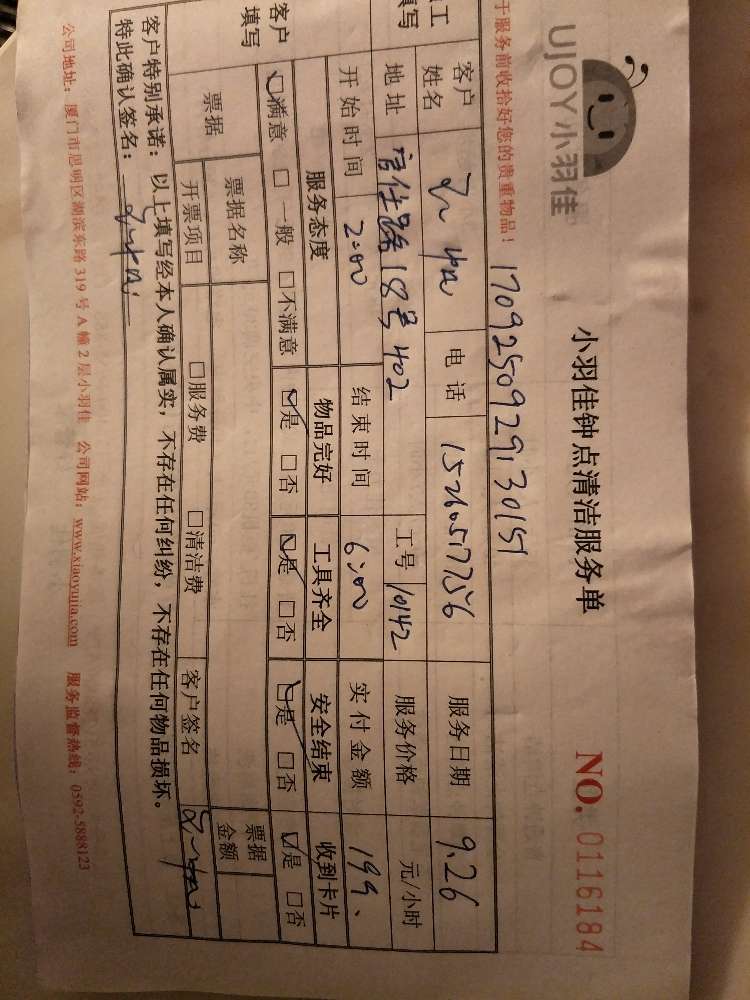 UJOY小羽佳
小羽佳钟点清洁服务单
NO. 0116184
于服务前收拾好您的贵重物品!
170925092913015
工
填写
客户姓名
电话
服务日期 9.26
地址 官任路18号402
工号 10142
服务价格 元/小时
开始时间 2:00
结束时间 6:00
实付金额 199、
客户填写
服务态度 物品完好 工具齐全 安全结束 收到卡片
□满意 □一般 □不满意 □是 □否 □是 □否 □是 □否 □是 □否
票据
票据名称
票据金额
开票项目 □服务费 □清洁费
客户签名
客户特别承诺:以上填写经本人确认属实,不存在任何纠纷,不存在任何物品损坏。
特此确认签名:
公司地址:厦门市思明区湖滨东路 319 号 A 幢 2 层小羽佳 公司网站:www.xiaoyujia.com 服务监督热线:0592-5888123